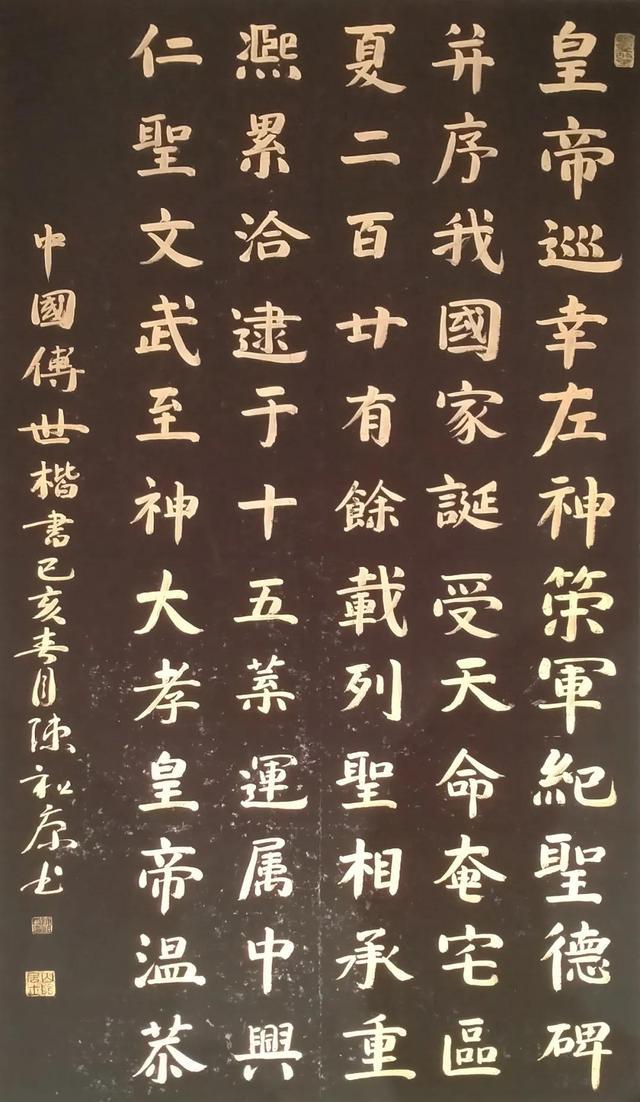 皇帝巡幸左神策軍紀聖德碑
并序我國家誕受天命奄宅區
夏二百廿有餘載列聖相承重
熙累洽逮于十五菜運属中興
仁聖文武至神大孝皇帝温恭
中國傳世楷書己亥春月陳和康书